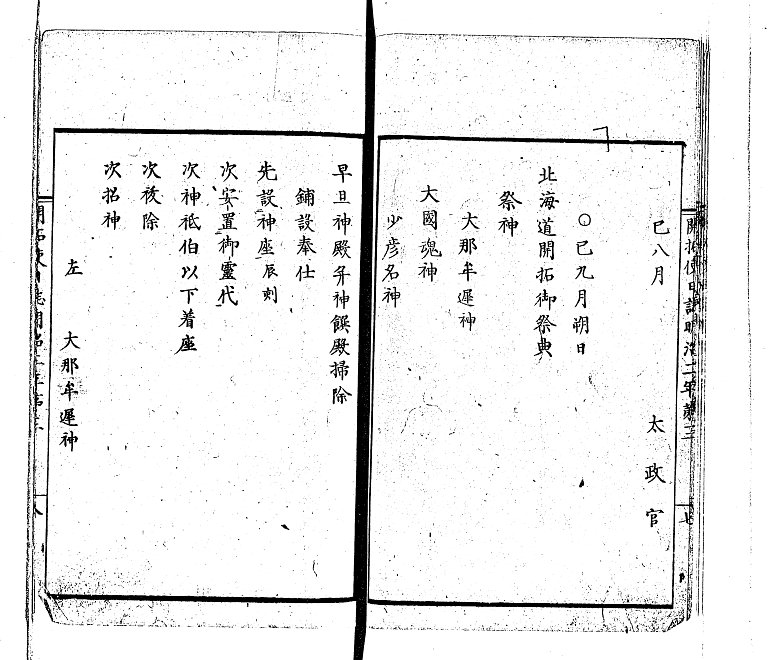 開拓使日誌明治二年第三
七
巳八月
太政官
○巳九月朔日
北海道開拓御祭典
祭神
大那牟遲神
大國魂神
少彦名神
早旦神殿并神饌殿掃除
鋪設奉仕
先設神座辰刻
次安置御靈代
次神祇伯以下着座
次祓除
次招神
左 大那牟遲神
八